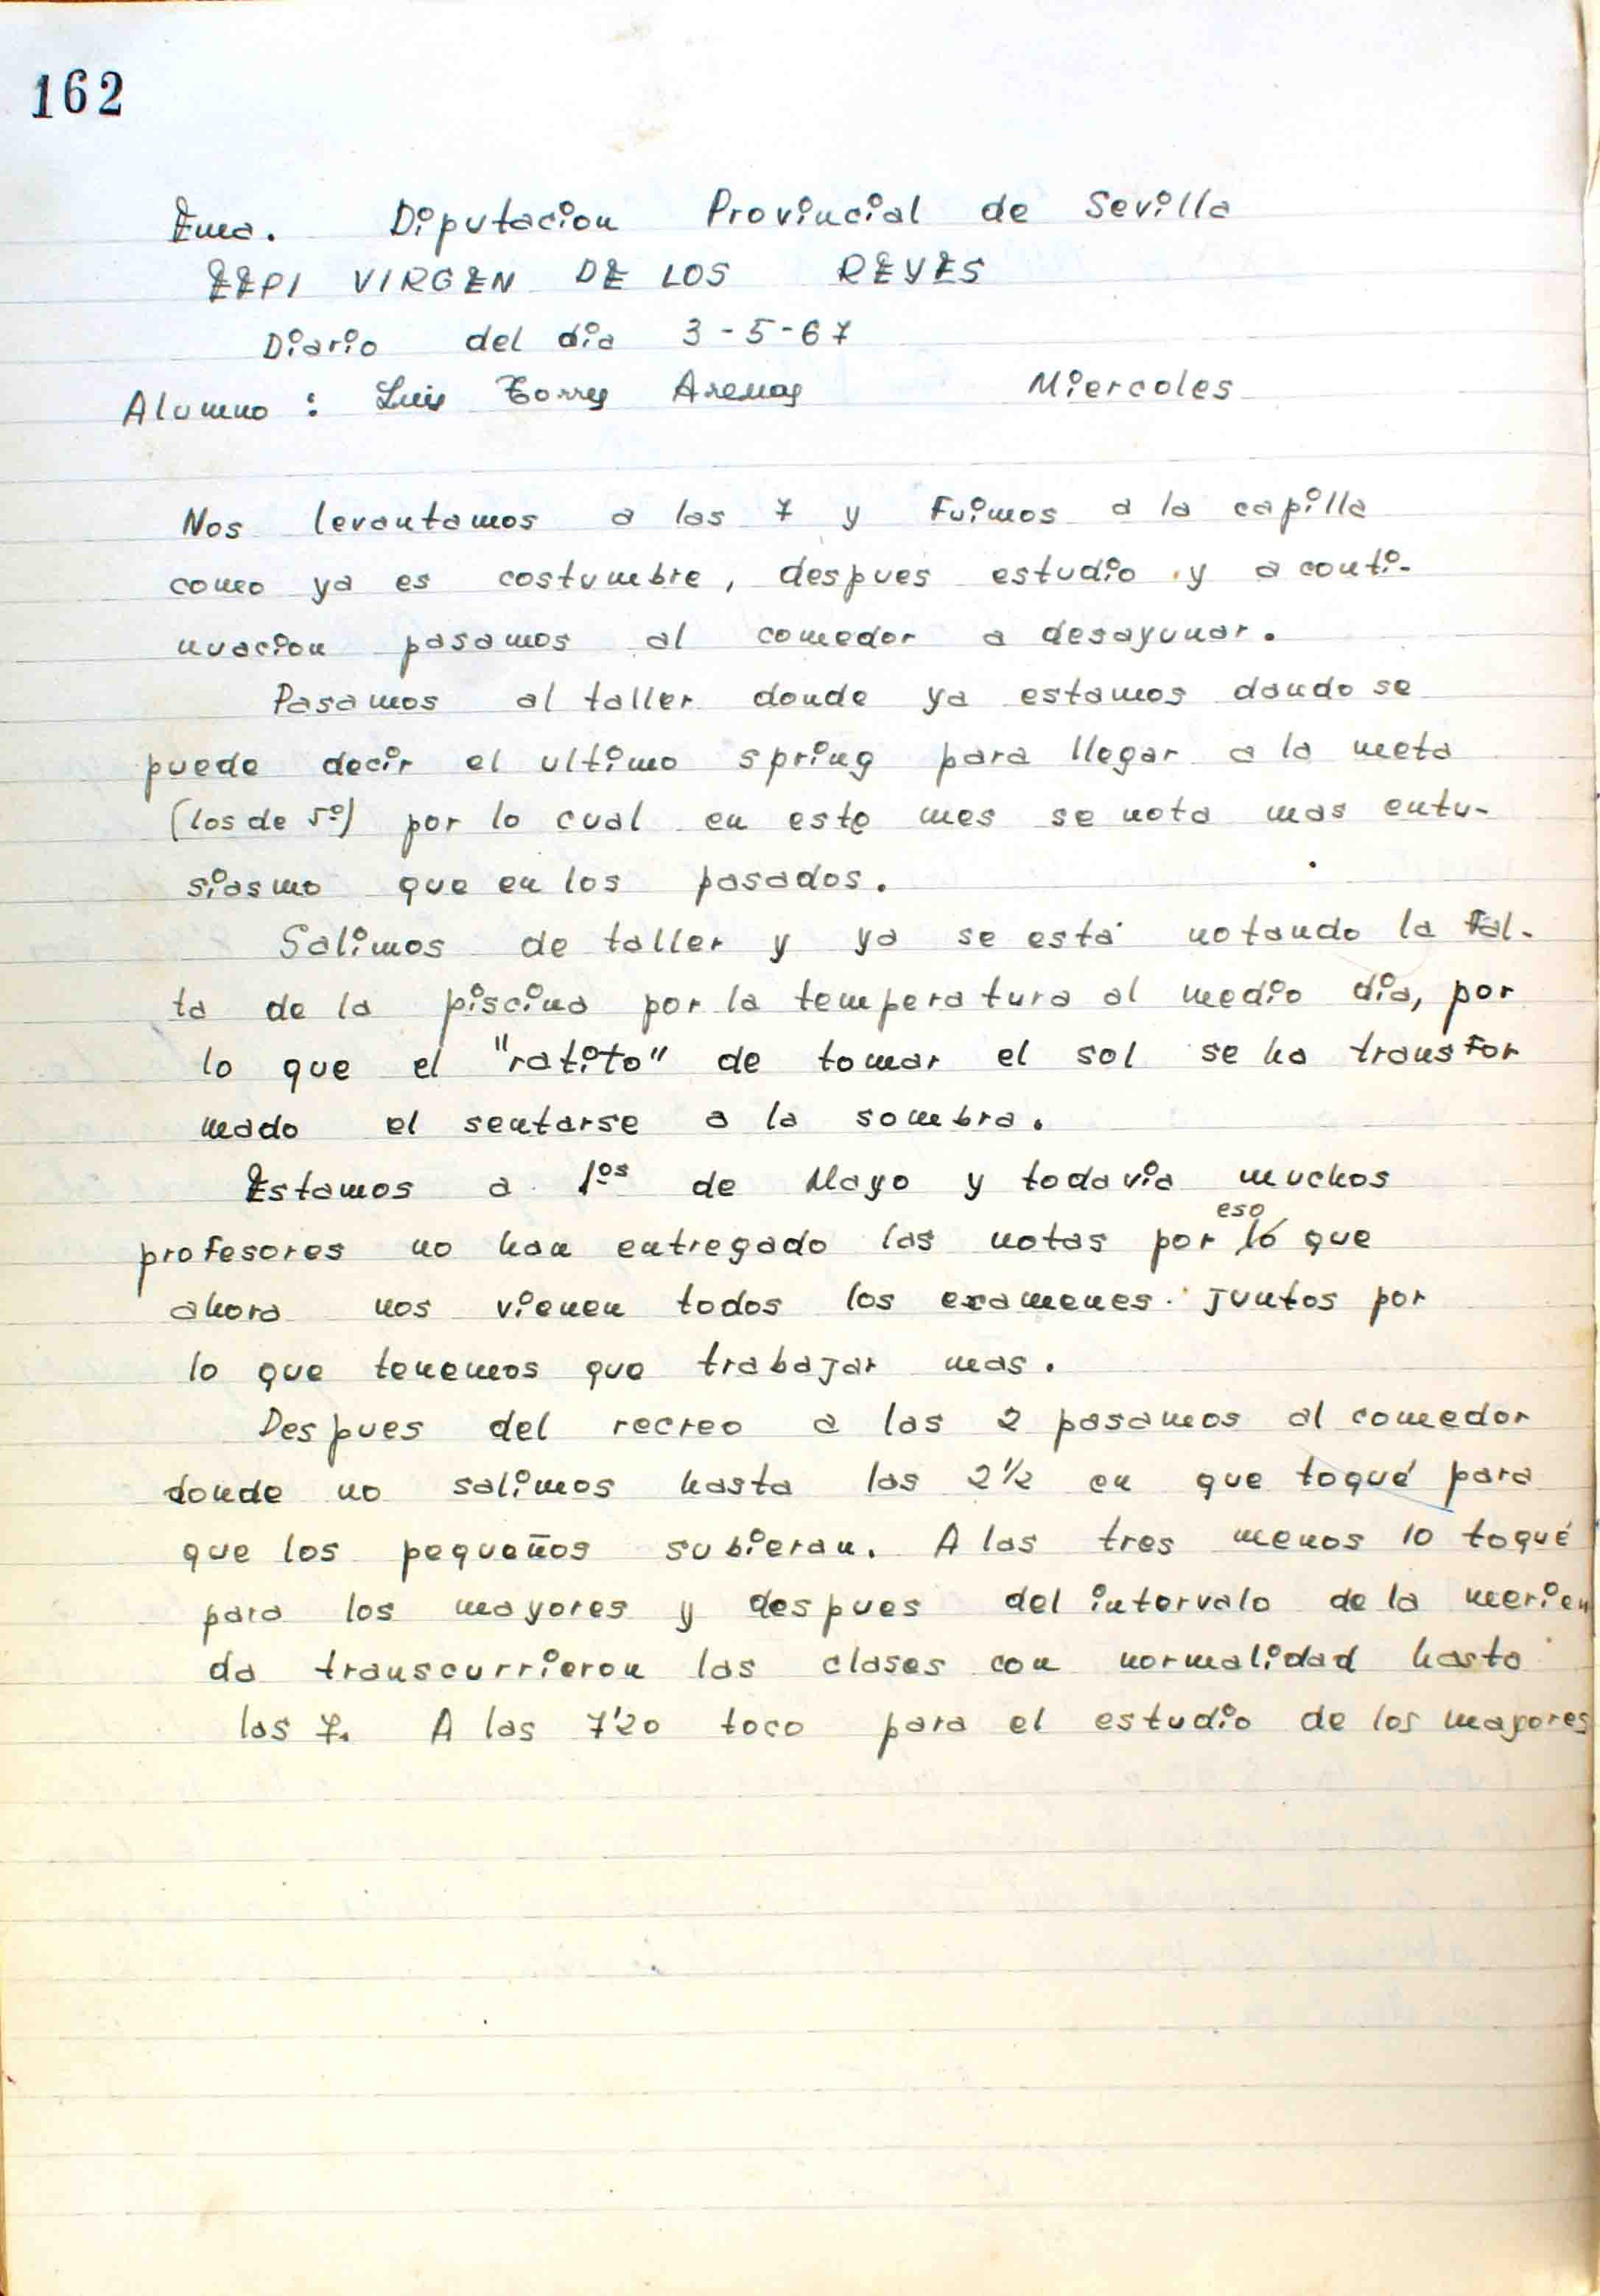 162
Ema. Diputacion Provincial de Sevilla
EEPI VIRGEN DE LOS REYES
Diario del dia 3-5-67
Alumno : Luis Torres Arenas Miercoles
Nos levantamos a las 7 y Fuimos a la capilla
como ya es costumbre, despues estudio y a conti-
nuacion pasamos al comedor a desayunar.
Pasamos al taller donde ya estamos dando se
puede decir el ultimo spring para llegar a la meta
(los de 5º) por lo cual en este mes se nota mas entu-
siasmo que en los pasados.
Salimos de taller y ya se está notando la fal-
ta de la piscina por la temperatura al medio dia, por
lo que el "ratito" de tomar el sol se ha transfor
mado el sentarse a la sombra.
Estamos a 1ºs de Mayo y todavia muchos
profesores no han entregado las notas por eso lo que
ahora nos vienen todos los examenes juntos por
lo que tenemos que trabajar mas.
Despues del recreo a las 2 pasamos al comedor
donde no salimos hasta las 2½ en que toqué para
que los pequeños subieran. A las tres menos 10 toqué
para los mayores y despues del intervalo de la merien
da transcurrieron las clases con normalidad hasta
las 7. A las 7'20 toco para el estudio de los mayores